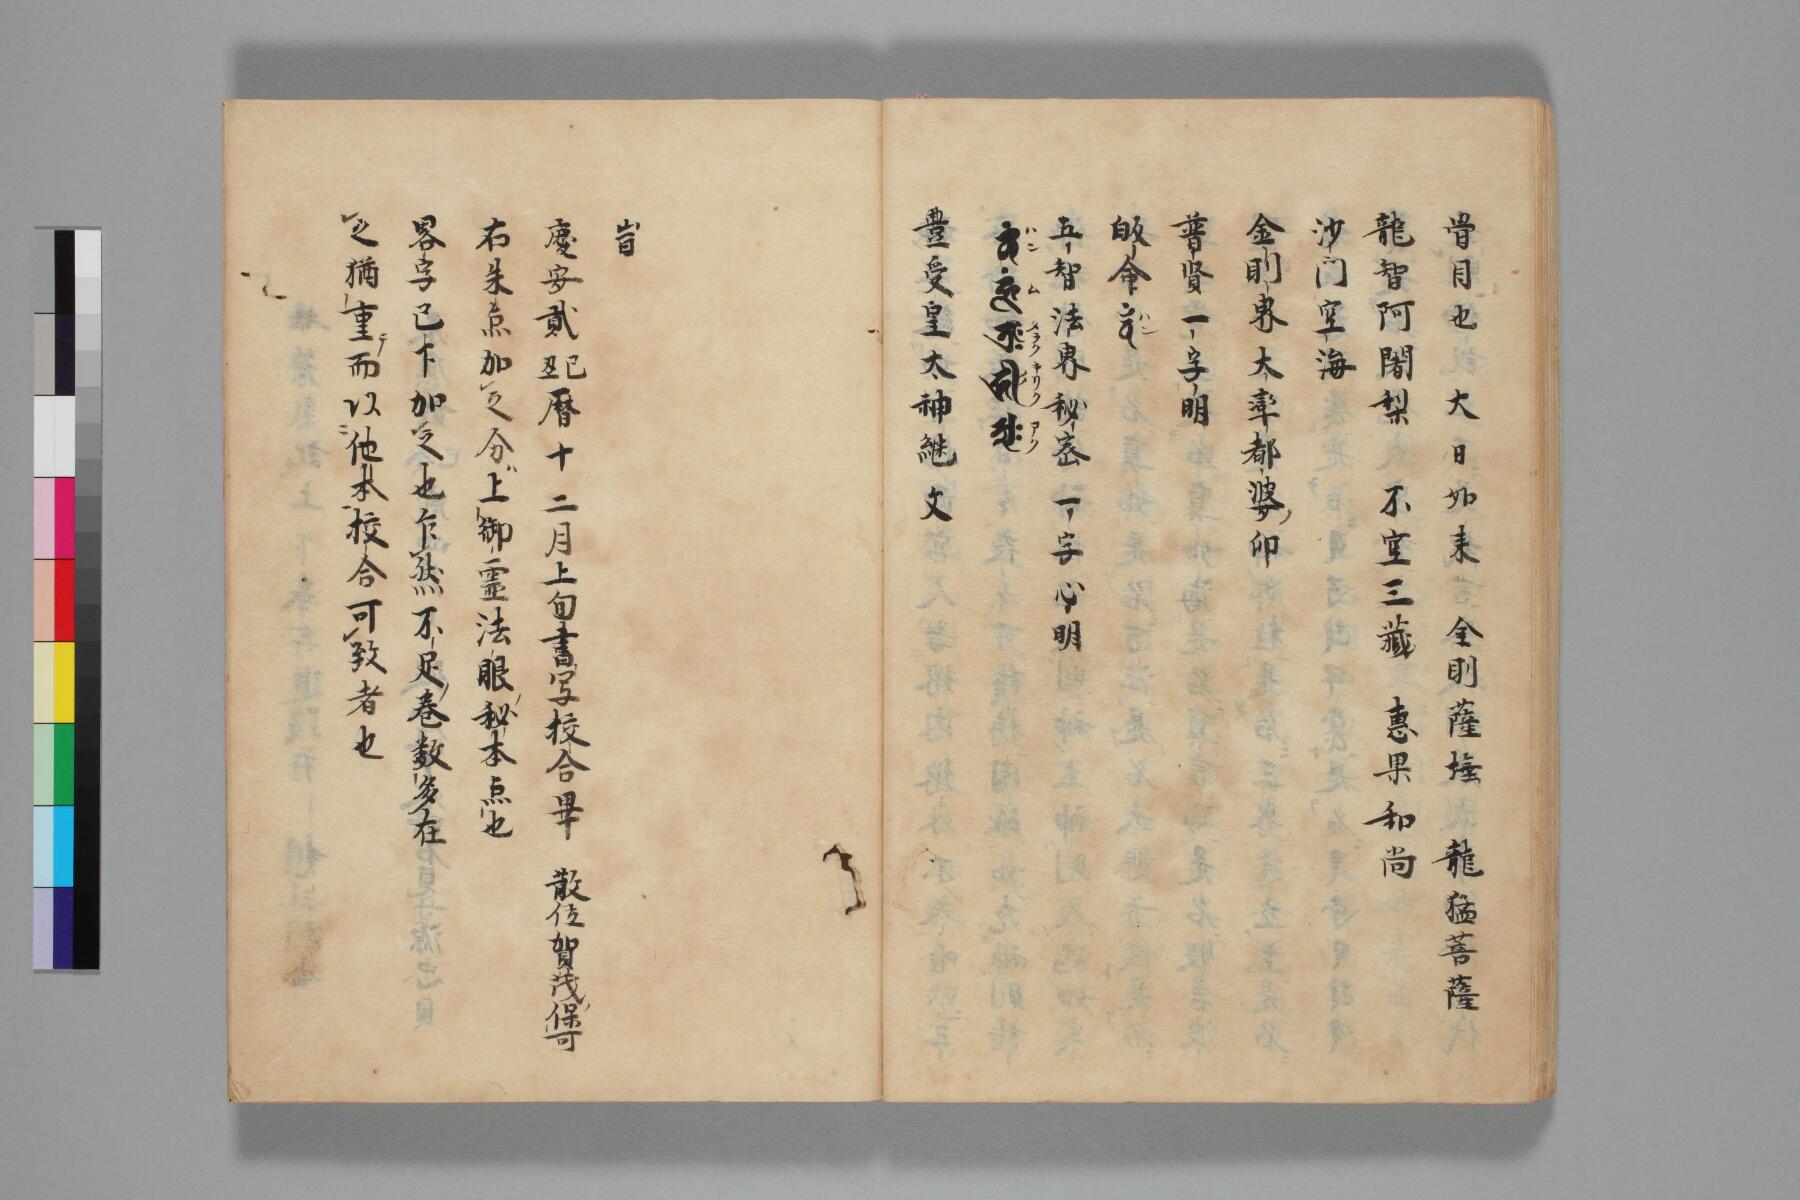 骨目也 大日如来 金剛薩埵 龍猛菩薩
龍智阿闍梨 不空三蔵 惠果和尚
沙門空海
金剛界大率都婆印
普賢一字明
皈命 ハン
五智法界秘密一字心明
ハン ム タラク キリク アク
豊受皇太神継文
慶安貳己丑暦十二月上旬書写校合畢 散位賀茂保可
右朱点加之分上御霊法眼秘本点也
畧字已下加之也乍然不足巻数多在
之猶重テ而以他本校合可致者也